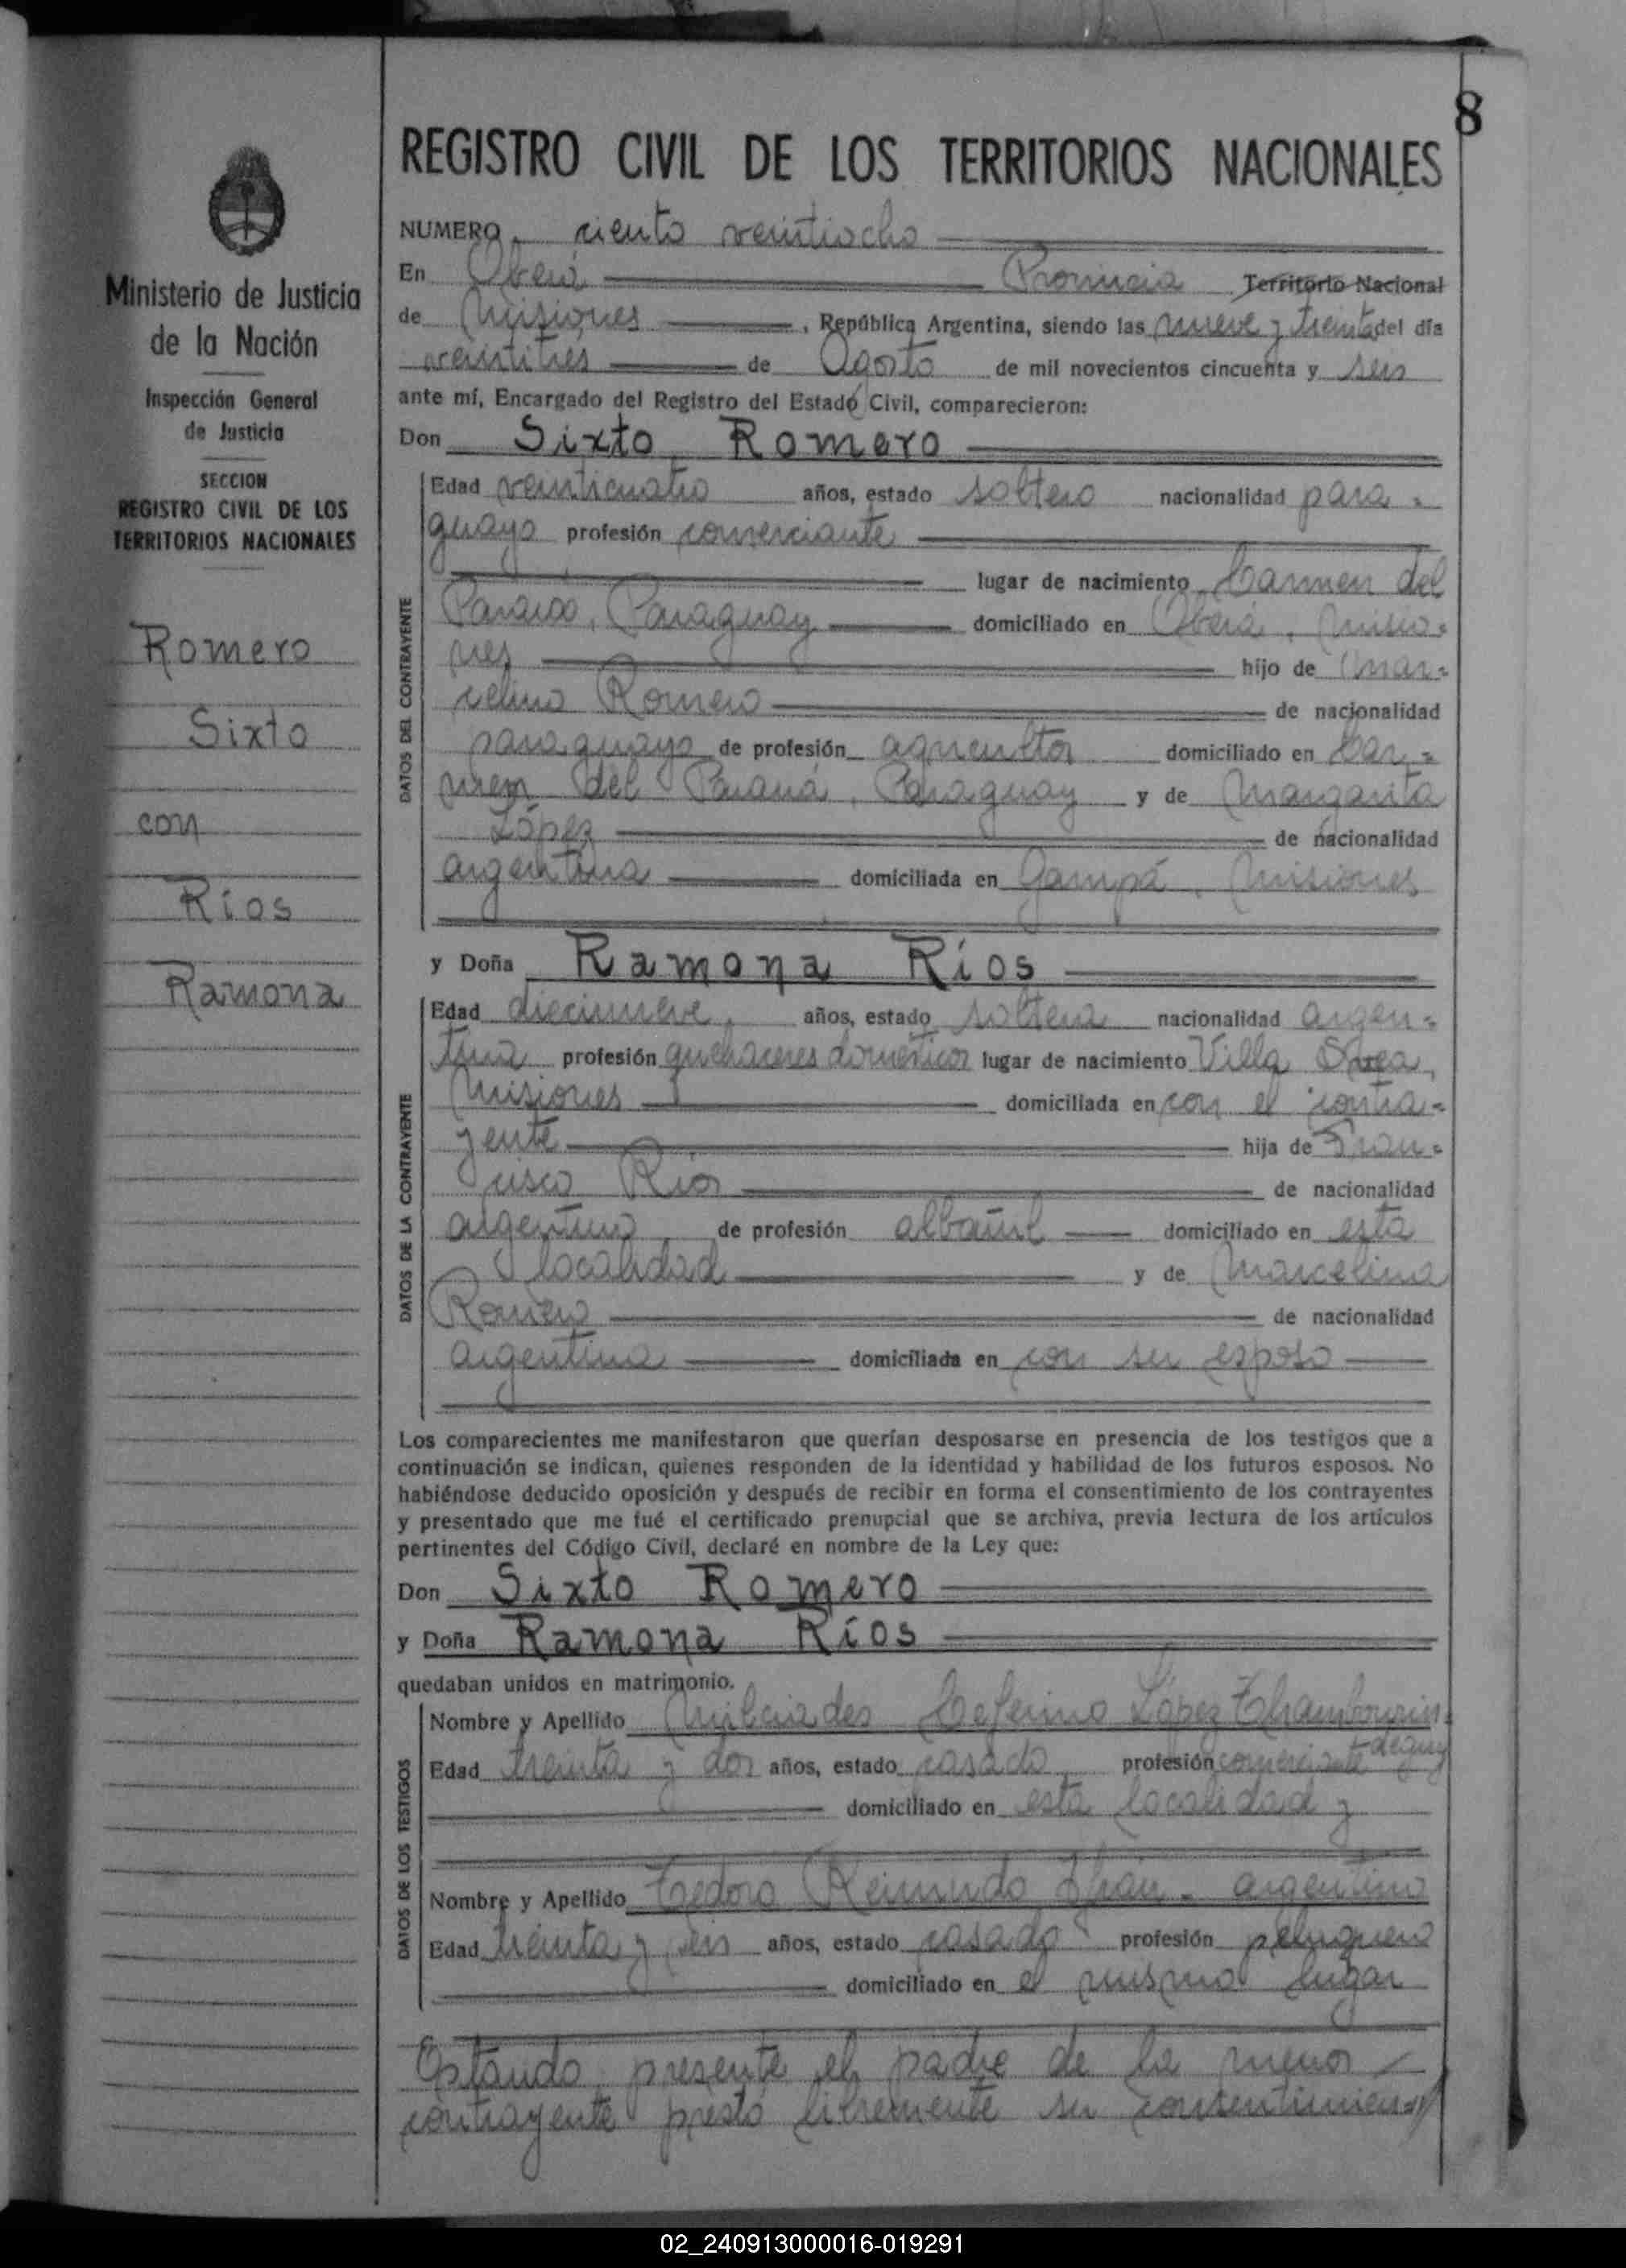 8
REGISTRO CIVIL DE LOS TERRITORIOS NACIONALES
Ministerio de Justicia
de la Nación
Inspección General
de Justicia
SECCION
REGISTRO CIVIL DE LOS
TERRITORIOS NACIONALES
Romero
Sixto
con
Ríos
Ramona
NUMERO ciento veintiocho
En Oberá Provincia Territorio Nacional
de Misiones, República Argentina, siendo las nueve y treinta del día
veintitrés de Agosto de mil novecientos cincuenta y seis
ante mí, Encargado del Registro del Estado Civil, comparecieron:
Don Sixto Romero
DATOS DEL CONTRAYENTE
Edad veinticuatro años, estado soltero nacionalidad para-
guayo profesión comerciante
lugar de nacimiento Carmen del
Paraguay domiciliado en Oberá, Misio-
nes hijo de Mar-
celino Romero de nacionalidad
paraguayo de profesión agricultor domiciliado en Car-
men del Paraná, Paraguay y de Margarita
López de nacionalidad
argentina domiciliada en Misiones
y Doña Ramona Ríos
DATOS DE LA CONTRAYENTE
Edad diecinueve, años, estado soltera nacionalidad argen-
tina profesión quehaceres domésticos lugar de nacimiento Villa
Misiones domiciliada en con el contra-
yente hija de Fran-
cisco Ríos de nacionalidad
argentino de profesión albañil domiciliado en esta
localidad y de Marcelina
Romero de nacionalidad
argentina domiciliada en con su esposo
Los comparecientes me manifestaron que querían desposarse en presencia de los testigos que a
continuación se indican, quienes responden de la identidad y habilidad de los futuros esposos. No
habiéndose deducido oposición y después de recibir en forma el consentimiento de los contrayentes
y presentado que me fué el certificado prenupcial que se archiva, previa lectura de los artículos
pertinentes del Código Civil, declaré en nombre de la Ley que:
Don Sixto Romero
y Doña Ramona Ríos
quedaban unidos en matrimonio.
DATOS DE LOS TESTIGOS
Nombre y Apellido Milciades Ceferino López
Edad treinta y dos años, estado casado profesión comerciante
domiciliado en esta localidad y
Nombre y Apellido argentino
Edad treinta y años, estado casado profesión peluquero
domiciliado en el mismo lugar
Estando presente el padre de la menor
contrayente prestó libremente su consentimien-
02_240913000016-019291